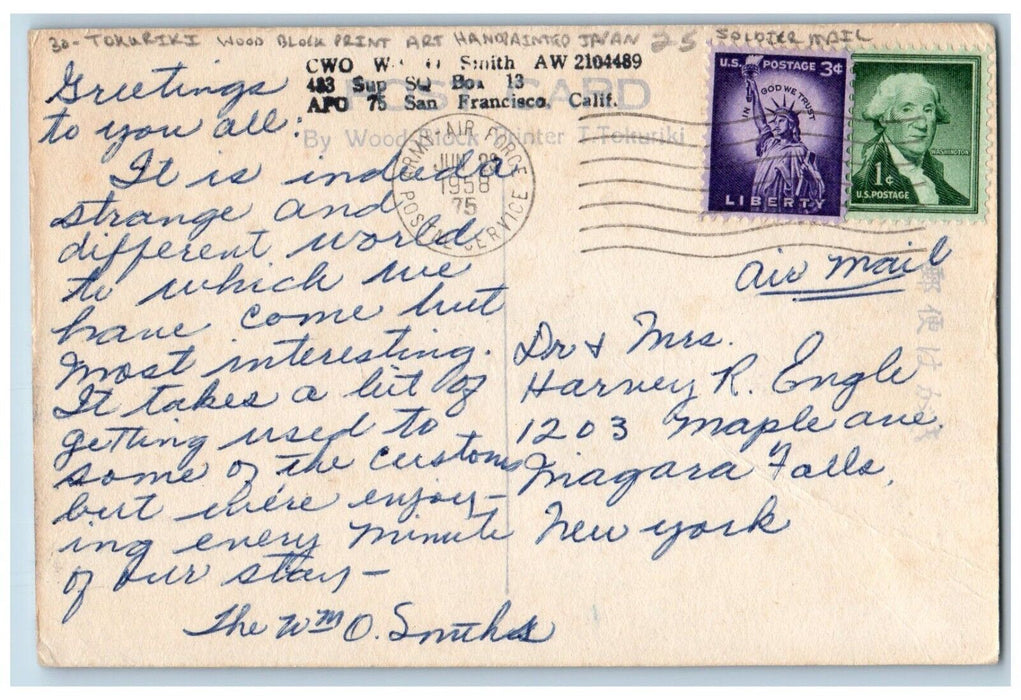 30- TOKURIKI WOOD BLOCK PRINT ART HANDPAINTED JAPAN 25 SOLDIER MAIL
CWO W O Smith AW 2104489
483 Sup SQ Box 13
APO 75 San Francisco, Calif.
POST CARD
By Wood Block Printer T. Tokuriki
ARMY-AIR FORCE
JUN 1958
75
POSTAL SERVICE
U.S. POSTAGE 3¢
IN GOD WE TRUST
LIBERTY
WASHINGTON
1¢
U.S. POSTAGE
Greetings
to you all:
It is indeed a
strange and
different world
to which we
have come but
most interesting.
It takes a bit of
getting used to
some of the customs
but we're enjoy-
ing every minute
of our stay-
The Wm O. Smiths
Air Mail
Dr & Mrs.
Harvey R. Engle
1203 Maple Ave.
Niagara Falls,
New York
郵便はがき